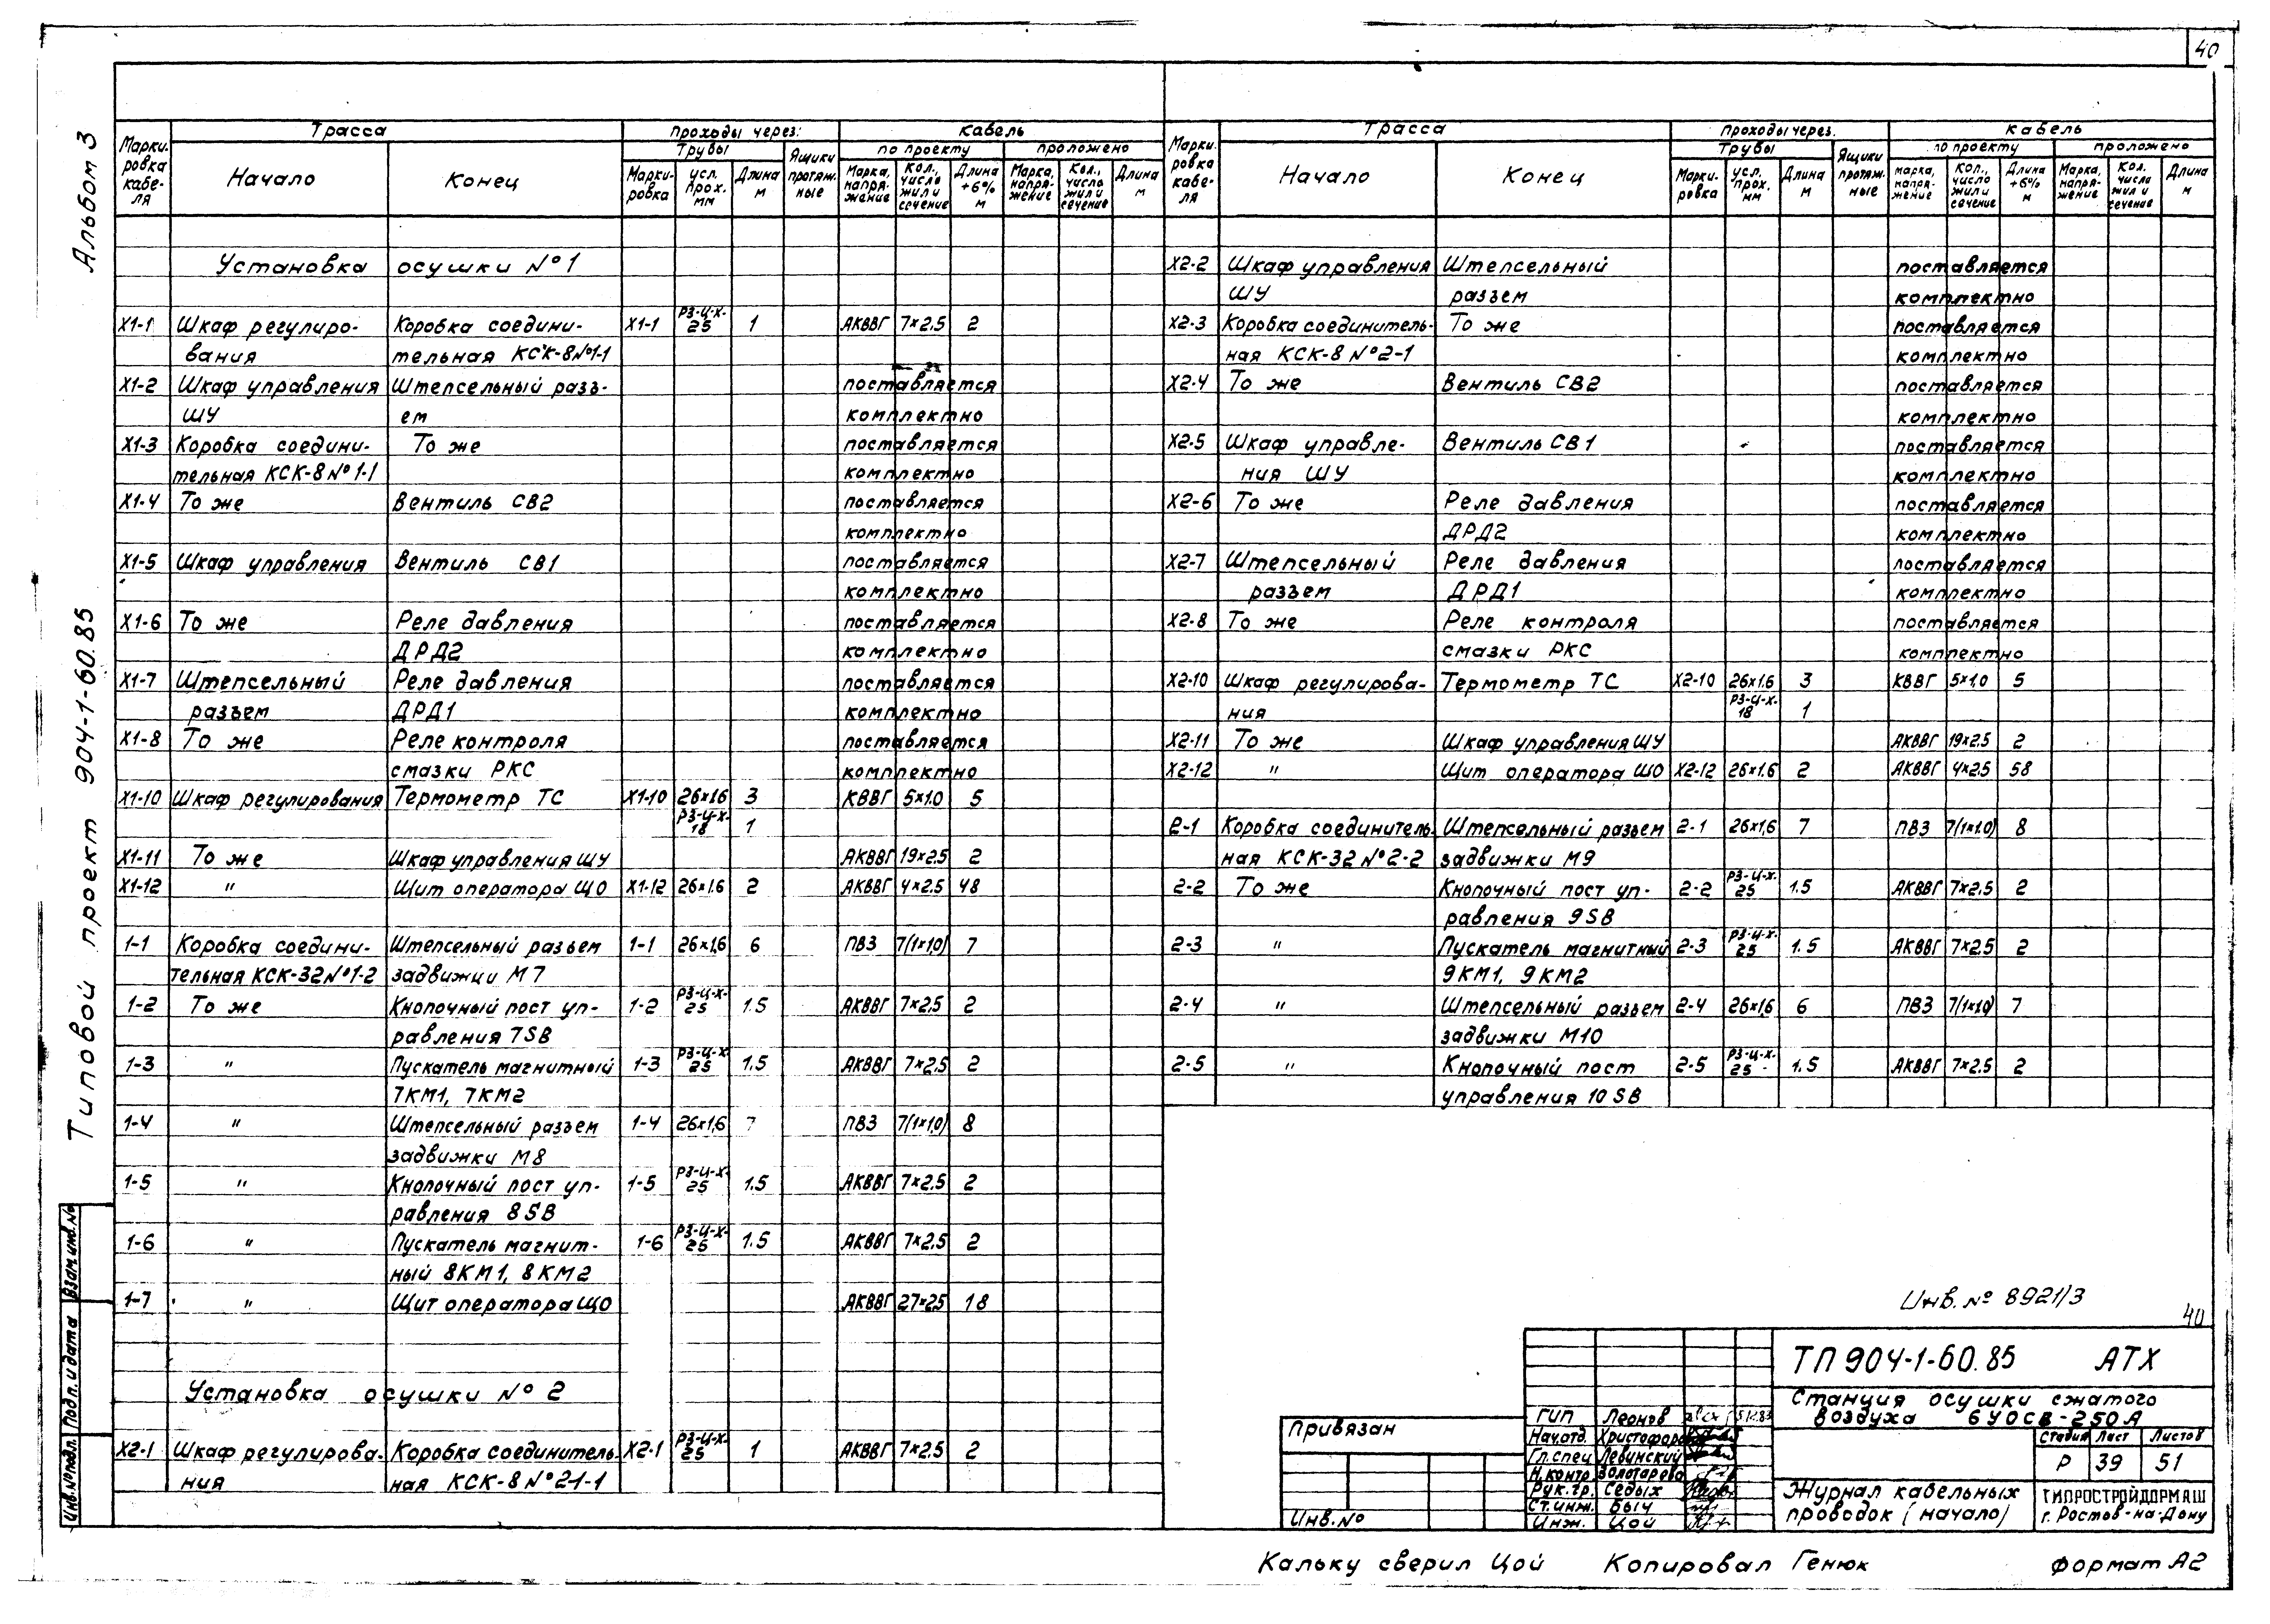 40
Альбом 3
Типовой проект 904-1-60.85
Взам.инв.№
Подп. и дата
Инв.№ подл.
Марки- ровка кабе- ля | Трасса | Проходы через: | Кабель
Начало | Конец | Трубы | Ящики протяж- ные | по проекту | проложено
Марки- ровка | усл. прох. мм | Длина м | Марка, напря- жение | Кол., число жил и сечение | Длина +6% м | Марка, напря- жение | Кол., число жил и сечение | Длина м
Установка осушки №1
Х1-1 Шкаф регулиро- Коробка соедини- Х1-1 РЗ-Ц-Х-25 1 АКВВГ 7×2.5 2
вания тельная КСК-8№1-1
Х1-2 Шкаф управления Штепсельный разъ- поставляется
ШУ ем комплектно
Х1-3 Коробка соедини- То же поставляется
тельная КСК-8№1-1 комплектно
Х1-4 То же Вентиль СВ2 поставляется
комплектно
Х1-5 Шкаф управления Вентиль СВ1 поставляется
комплектно
Х1-6 То же Реле давления поставляется
ДРД2 комплектно
Х1-7 Штепсельный Реле давления поставляется
разъем ДРД1 комплектно
Х1-8 То же Реле контроля поставляется
смазки РКС комплектно
Х1-10 Шкаф регулирования Термометр ТС Х1-10 26×1.6 3 КВВГ 5×1.0 5
РЗ-Ц-Х-18 1
Х1-11 То же Шкаф управления ШУ АКВВГ 19×2.5 2
Х1-12 " Щит оператора ЩО Х1-12 26×1.6 2 АКВВГ 4×2.5 48
1-1 Коробка соедини- Штепсельный разъем 1-1 26×1,6 6 ПВ3 7(1×1,0) 7
тельная КСК-32№1-2 задвижки М7
1-2 То же Кнопочный пост уп- 1-2 РЗ-Ц-Х-25 1.5 АКВВГ 7×2.5 2
равления 7SB
1-3 " Пускатель магнитный 1-3 РЗ-Ц-Х-25 1.5 АКВВГ 7×2.5 2
7КМ1, 7КМ2
1-4 " Штепсельный разъем 1-4 26×1,6 7 ПВ3 7(1×1,0) 8
задвижки М8
1-5 " Кнопочный пост уп- 1-5 РЗ-Ц-Х-25 1.5 АКВВГ 7×2.5 2
равления 8SB
1-6 " Пускатель магнит- 1-6 РЗ-Ц-Х-25 1.5 АКВВГ 7×2.5 2
ный 8КМ1, 8КМ2
1-7 " Щит оператора ЩО АКВВГ 27×2.5 18
Установка осушки №2
Х2-1 Шкаф регулирова- Коробка соединитель- Х2-1 РЗ-Ц-Х-25 1 АКВВГ 7×2.5 2
ния ная КСК-8 №2-1-1
Марки- ровка кабе- ля | Трасса | Проходы через: | Кабель
Начало | Конец | Трубы | Ящики протяж- ные | по проекту | проложено
Марки- ровка | усл. прох. мм | Длина м | марка, напря- жение | Кол., число жил и сечение | Длина +6% м | Марка, напря- жение | Кол. число жил и сечение | Длина м
Х2-2 Шкаф управления Штепсельный поставляется
ШУ разъем комплектно
Х2-3 Коробка соединитель- То же поставляется
ная КСК-8 №2-1 комплектно
Х2-4 То же Вентиль СВ2 поставляется
комплектно
Х2-5 Шкаф управле- Вентиль СВ1 поставляется
ния ШУ комплектно
Х2-6 То же Реле давления поставляется
ДРД2 комплектно
Х2-7 Штепсельный Реле давления поставляется
разъем ДРД1 комплектно
Х2-8 То же Реле контроля поставляется
смазки РКС комплектно
Х2-10 Шкаф регулирова- Термометр ТС Х2-10 26×1.6 3 КВВГ 5×1.0 5
ния РЗ-Ц-Х-18 1
Х2-11 То же Шкаф управления ШУ АКВВГ 19×2.5 2
Х2-12 " Щит оператора ЩО Х2-12 26×1.6 2 АКВВГ 4×2.5 58
2-1 Коробка соединитель- Штепсельный разъем 2-1 26×1,6 7 ПВ3 7(1×1.0) 8
ная КСК-32 №2-2 задвижки М9
2-2 То же Кнопочный пост уп- 2-2 РЗ-Ц-Х-25 1.5 АКВВГ 7×2.5 2
равления 9SB
2-3 " Пускатель магнитный 2-3 РЗ-Ц-Х-25 1.5 АКВВГ 7×2.5 2
9КМ1, 9КМ2
2-4 " Штепсельный разъем 2-4 26×1,6 6 ПВ3 7(1×1.0) 7
задвижки М10
2-5 " Кнопочный пост 2-5 РЗ-Ц-Х-25 1.5 АКВВГ 7×2.5 2
управления 10SB
Инв. № 8921/3
40
ТП 904-1-60.85 АТХ
Станция осушки сжатого
воздуха 6УОСВ-250А
Стадия Лист Листов
Р 39 51
Журнал кабельных
проводок (начало)
ГИПРОСТРОЙДОРМАШ
г. Ростов-на-Дону
ГИП Леонов
Нач.отд. Христофоров
Гл.спец Левинский
Н.контр. Золотарева
Рук.гр. Седых
Ст.инж. Быч
Инж. Цой
Привязан
Инв.№
Кальку сверил Цой Копировал Генюк Формат А2